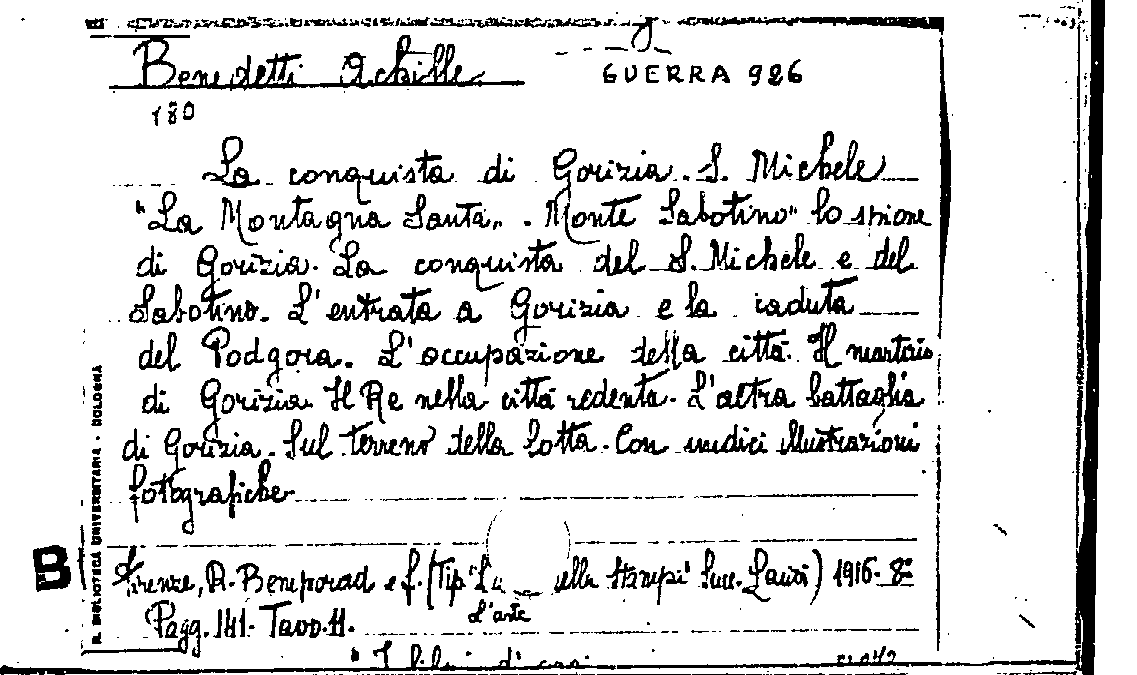 Benedetti Achille
GUERRA 926
180
La conquista di Gorizia. S. Michele
"La Montagna Santa". Monte Sabotino" lo spione
di Gorizia. La conquista del S. Michele e del
Sabotino. L'entrata a Gorizia e la caduta
del Podgora. L'occupazione della città. Il martirio
di Gorizia. Il Re nella città redenta. L'altra battaglia
di Gorizia. Sul terreno della lotta. Con undici illustrazioni
fotografiche
Firenze, R. Bemporad e f. (Tip. "L'a della Stampa" Succ. Landi) 1916. 8°
d'arte
Pagg. 141. Tavv. 11.
R. BIBLIOTECA UNIVERSITARIA - BOLOGNA
B
"I libri d'oggi